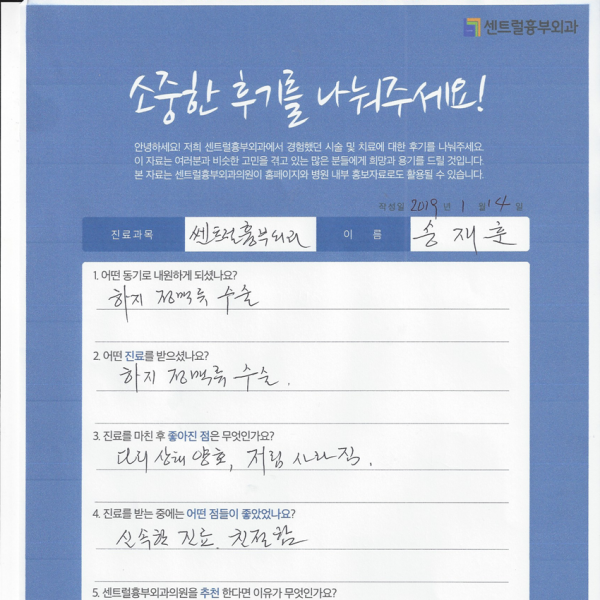 센트럴흉부외과
소중한 후기를 나눠주세요!
안녕하세요! 저희 센트럴흉부외과에서 경험했던 시술 및 치료에 대한 후기를 나눠주세요.
이 자료는 여러분과 비슷한 고민을 겪고 있는 많은 분들에게 희망과 용기를 드릴 것입니다.
본 자료는 센트럴흉부외과의원이 홈페이지와 병원 내부 홍보자료로도 활용될 수 있습니다.
작성일 2019 년 1 월 14 일
진료과목 쎈트럴흉부외과 이 름 송재훈
1. 어떤 동기로 내원하게 되셨나요?
하지 정맥류 수술
2. 어떤 진료를 받으셨나요?
하지 정맥류 수술.
3. 진료를 마친 후 좋아진 점은 무엇인가요?
다리 상태 양호, 저림 사라짐.
4. 진료를 받는 중에는 어떤 점들이 좋았었나요?
신속한 진료. 친절함
5. 센트럴흉부외과의원을 추천 한다면 이유가 무엇인가요?